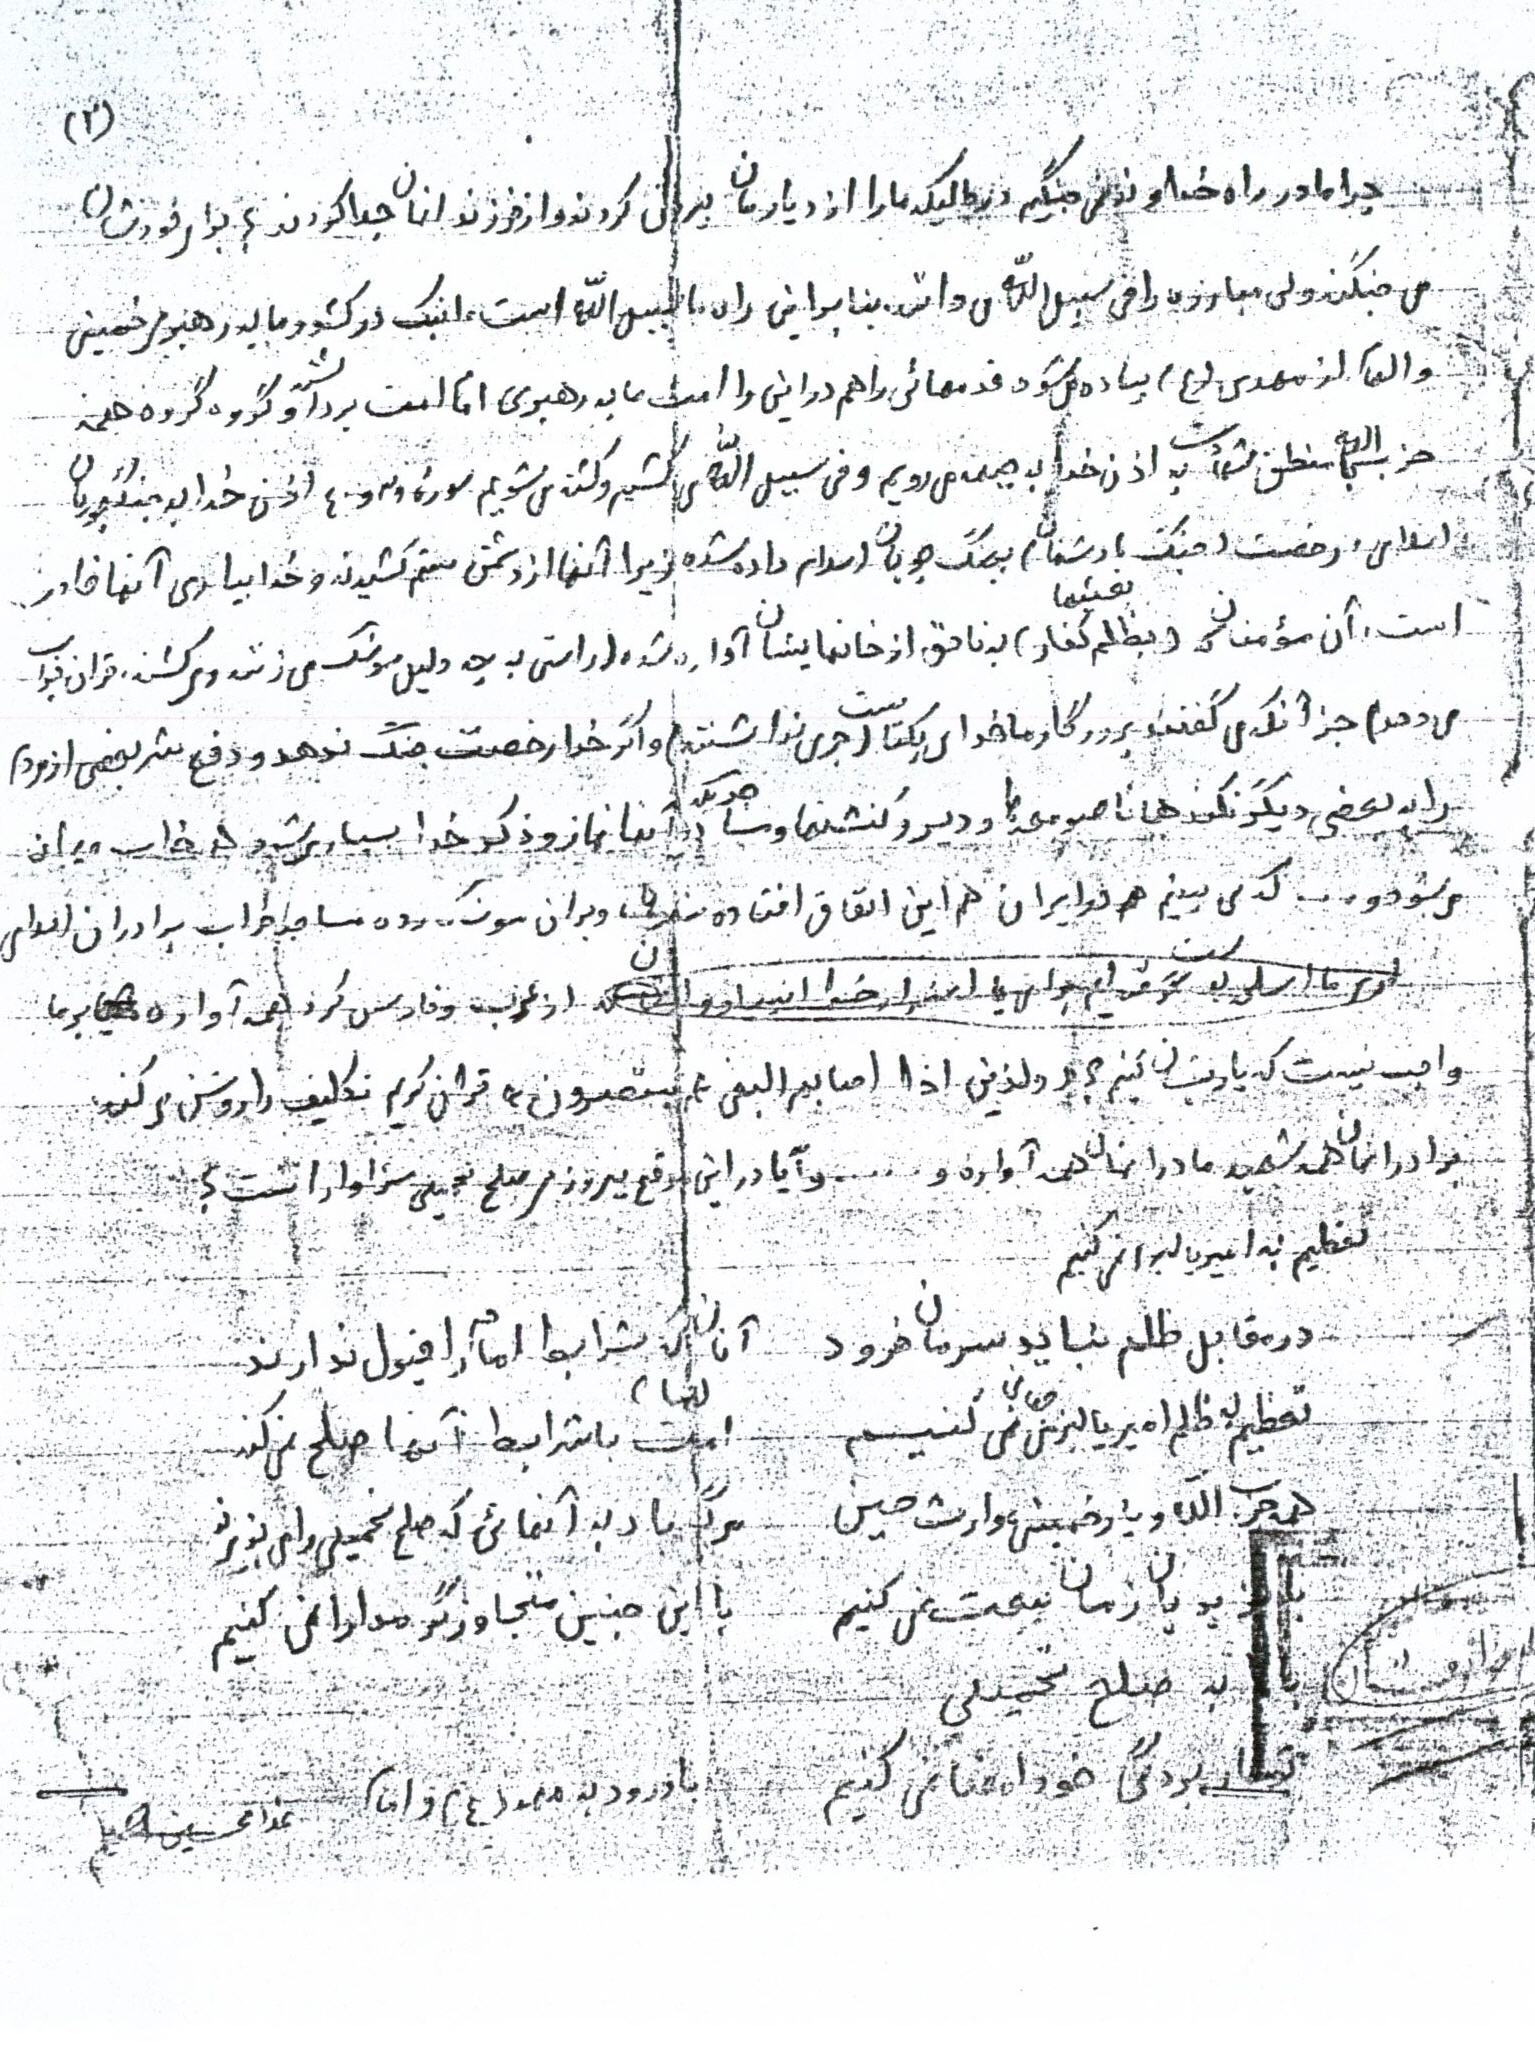 (۲)
چرا ما در راه خداوند نمی جنگیم در حالیکه ما را از دیارمان بیرون کردند و از فرزندانمان جدا کردند برای خودشان
می جنگند ولی مبارزه را فی سبیل الله می دانند. بنابراین راه ما سبیل الله است، اینک در کشور ما به رهبری خمینی
و الهام از مهدی (ع) پیاده می شود قدمهائی را هم در این راه امت ما به رهبری امام امت برداشته و گروه گروه همه
حزب الله به اذن خدا به جبهه می رویم و فی سبیل الله می کشیم و کشته می شویم سوره اذن خدا به جنگجویان
اسلامی، رخصت (جنگ با دشمنان) بجنگ جویان اسلام داده شده زیرا آنها از دشمن ستم کشیدند و خدا بیاری آنها قادر
است، آن مؤمنان که (بظلم کفار) به ناحق از خانهایشان آواره شده (راستی به چه دلیل موشک می زنند و می کشند. قران جواب
می دهد) جز آنکه می گفتند پروردگار ما خدای یکتاست (جرمی نداشتند) و اگر خدا رخصت جنگ ندهد و دفع شر بعضی از مردم
را به بعضی دیگر نکند همانا صومعه ها و دیر و کنشتها و مساجدیکه در آنها نماز و ذکر خدا بسیار می شود همه خراب ویران
می شود و .... که می بینم هم در ایران هم این اتفاق افتاده ویران مساجد خراب برادران اسلامی
از عرب و فارس کرد همه آواره بر ما
واجب نیست که یاریشان کنیم؟ والذین اذا اصابهم البغی هم ینتصرون قرآن کریم تکلیف را روشن می کند
برادرانمان همه شهید مادرانمان همه آواره و ...... و آیا در این موقع پیروزی صلح تحمیلی سزاوار است؟
تعظیم به امپریالیزم نمی کنیم
در مقابل ظلم نباید سرمان فرود آنان که شرایط امام را قبول ندارند
تعظیم به ظلم امپریالیزم جهانی نمی کنیم امت با شرایط آنها صلح نمی کند
همه حزب الله و یار خمینی وارث حسین مرگ باد به آنهائی که صلح تحمیلی را می پذیرند
با یزیدیان زمان بیعت نمی کنیم با این چنین متجاوزگر مدارا نمی کنیم
به صلح تحمیلی
بردگی خود امضا نمی کنیم با درود به مهدی (عج) و امام